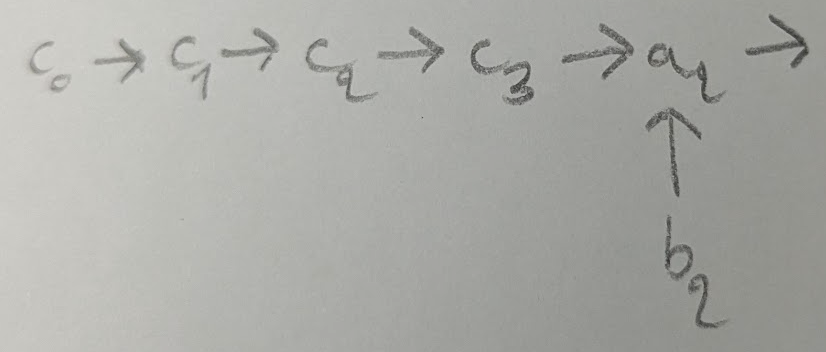 c₀ → c₁ → c₂ → c₃ → a₂ →
↑
b₂